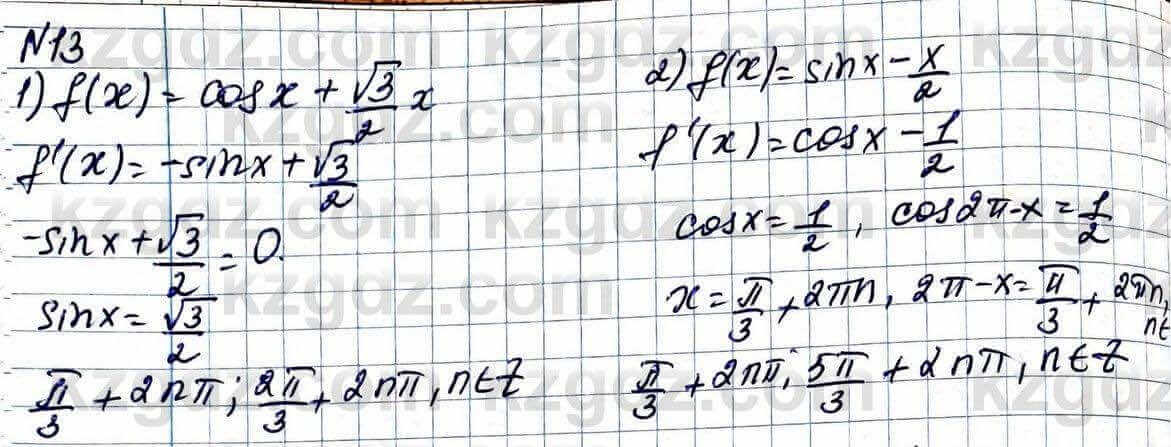 №13
1) f(x) = cosx + √3/2 x
f'(x) = -sinx + √3/2
-sinx + √3/2 = 0.
sinx = √3/2
π/3 + 2nπ; 2π/3 + 2nπ, n∈Z
2) f(x) = sinx - x/2
f'(x) = cosx - 1/2
cosx = 1/2, cos2π-x = 1/2
x = π/3 + 2πn, 2π-x = π/3 + 2πn, n∈
π/3 + 2nπ; 5π/3 + 2nπ, n∈Z
kzgdz.com